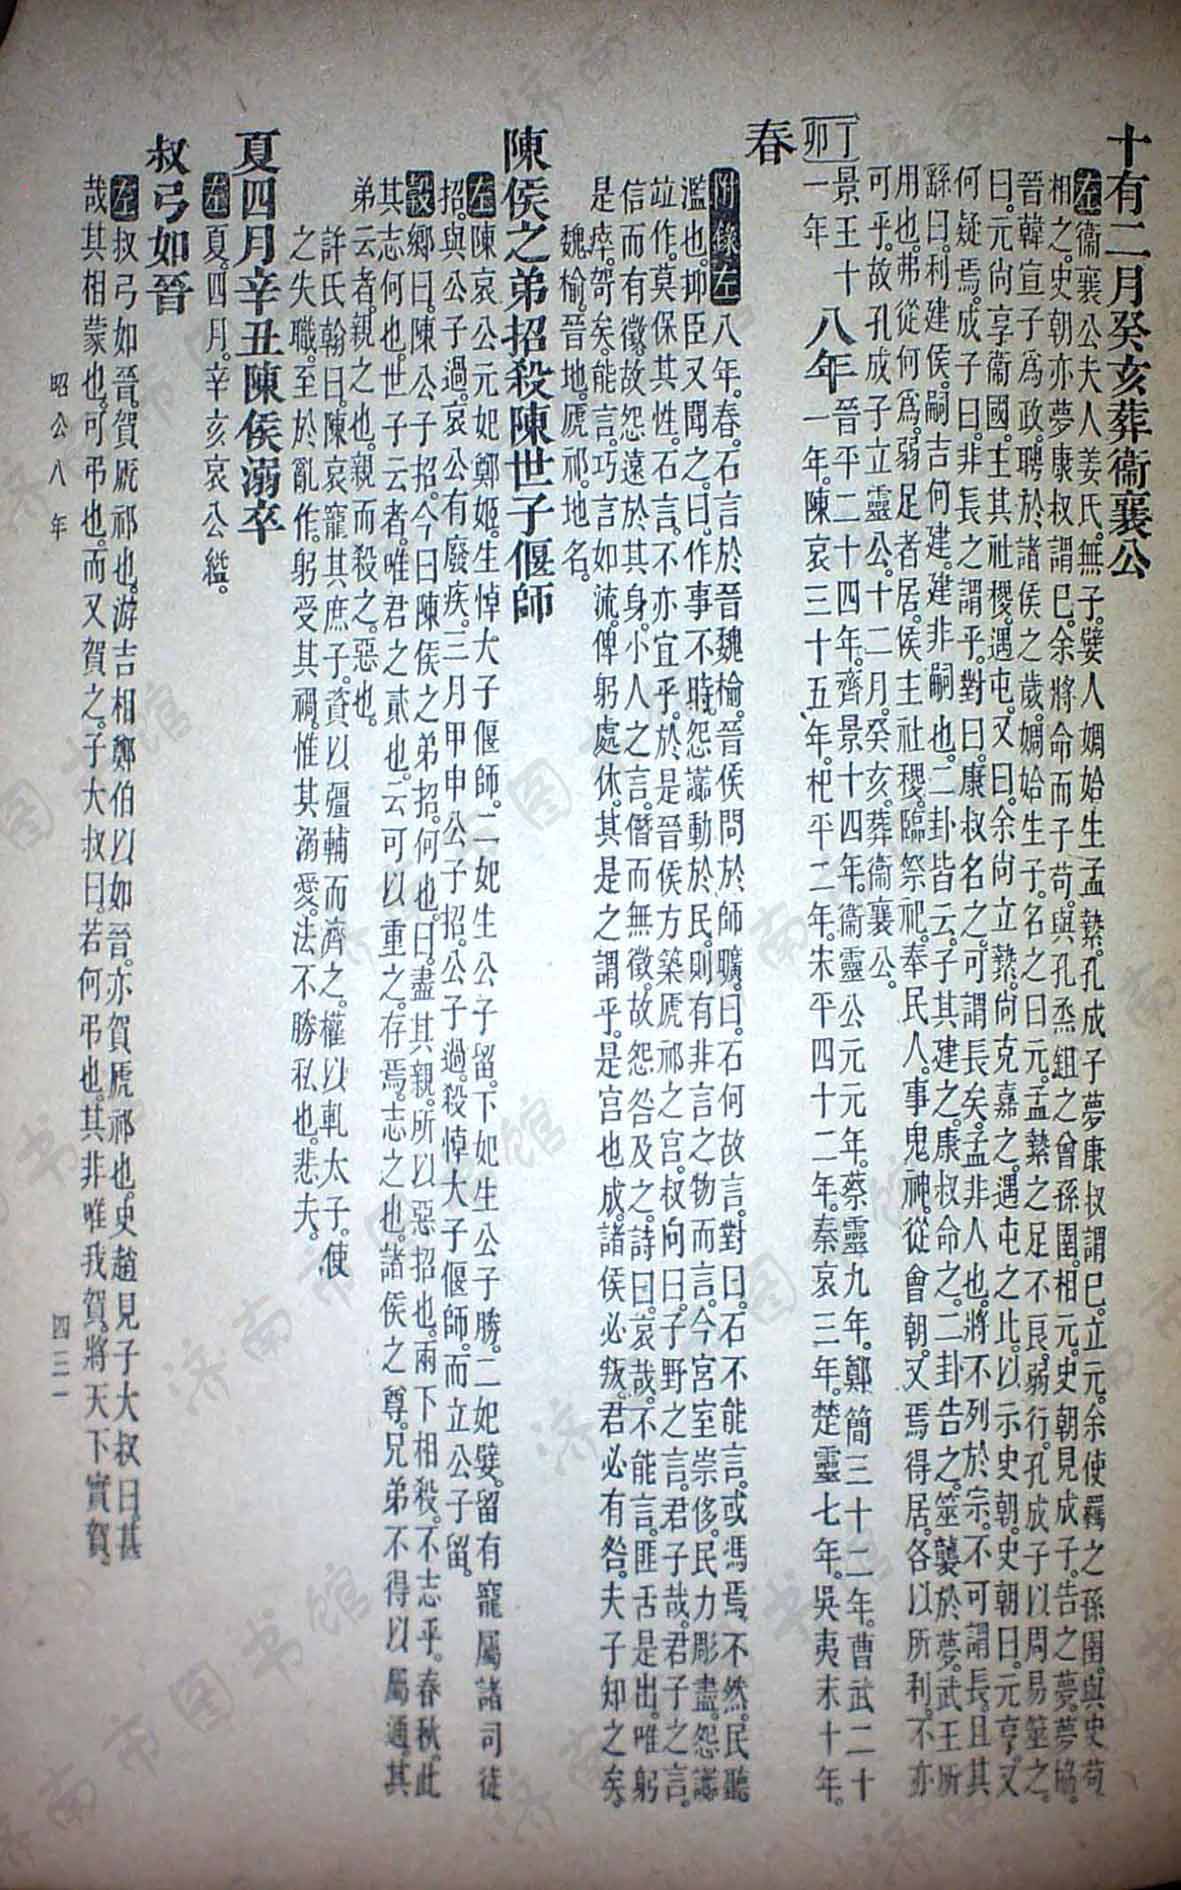 十有二月癸亥葬衞襄公
左衞襄公夫人姜氏。無子。嬖人婤姶生孟縶。孔成子夢康叔謂巳。立元。余使羈之孫圉。與史苟
相之。史朝亦夢康叔謂巳。余將命而子苟。與孔烝鉏之曾孫圉。相元。史朝見成子。告之夢。夢協。
晉韓宣子爲政。聘於諸侯之歲。婤姶生子。名之曰元。孟縶之足不良。弱行。孔成子以周易筮之。
曰。元尙享衞國。主其社稷。遇屯。又曰。余尙立縶。尙克嘉之。遇屯之比。以示史朝。史朝曰。元亨。又
何疑焉。成子曰。非長之謂乎。對曰。康叔名之。可謂長矣。孟非人也。將不列於宗。不可謂長。且其
繇曰。利建侯。嗣吉何建。建非嗣也。二卦皆云。子其建之。康叔命之。二卦告之。筮襲於夢。武王所
用也。弗從何爲。弱足者居。侯主社稷。臨祭祀。奉民人。事鬼神。從會朝。又焉得居。各以所利。不亦
可乎。故孔成子立靈公。十二月。癸亥。葬衞襄公。
丁卯 景王十一年 八年 晉平二十四年。齊景十四年。衞靈公元元年。蔡靈九年。鄭簡三十二年。曹武二十一年。陳哀三十五年。杞平二年。宋平四十二年。秦哀三年。楚靈七年。吳夷末十年。
春
附錄左八年。春。石言於晉魏榆。晉侯問於師曠。曰。石何故言。對曰。石不能言。或馮焉。不然。民聽
濫也。抑臣又聞之。曰。作事不時。怨讟動於民。則有非言之物而言。今宮室崇侈。民力彫盡。怨讟
竝作。莫保其性。石言。不亦宜乎。於是晉侯方築虒祁之宮。叔向曰。子野之言。君子哉。君子之言。
信而有徵。故怨遠於其身。小人之言。僭而無徵。故怨咎及之。詩曰。哀哉。不能言。匪舌是出。唯躬
是瘁。哿矣。能言。巧言如流。俾躬處休。其是之謂乎。是宮也成。諸侯必叛。君必有咎。夫子知之矣。
魏榆。晉地。虒祁。地名。
陳侯之弟招殺陳世子偃師
左陳哀公元妃鄭姬。生悼大子偃師。二妃生公子留。下妃生公子勝。二妃嬖。留有寵。屬諸司徒
招。與公子過。哀公有廢疾。三月甲申公子招。公子過。殺悼大子偃師。而立公子留。
穀鄉曰。陳公子招。今曰陳侯之弟招。何也。曰。盡其親。所以惡招也。兩下相殺。不志乎。春秋。此
其志何也。世子云者。唯君之貳也。云可以重之。存焉。志之也。諸侯之尊。兄弟不得以屬通。其
弟云者。親之也。親而殺之。惡也。
許氏翰曰。陳哀寵其庶子。資以彊輔而濟之。權以軋太子。使
之失職。至於亂作。躬受其禍。惟其溺愛。法不勝私也。悲夫。
夏四月辛丑陳侯溺卒
左夏。四月。辛亥哀公縊。
叔弓如晉
左叔弓如晉。賀虒祁也。游吉相鄭伯以如晉。亦賀虒祁也。史趙見子大叔曰。甚
哉其相蒙也。可弔也。而又賀之。子大叔曰。若何弔也。其非唯我賀。將天下實賀。
昭公八年
四三一